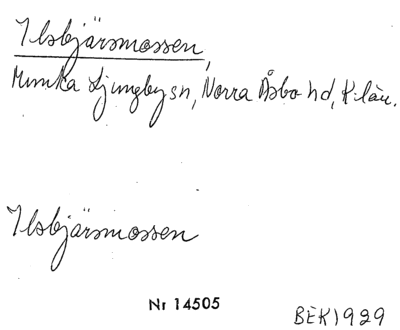 Ilsbjärsmossen,
Munka Ljungby sn, Norra Åsbo hd, K.län.
Ilsbjärsmossen
Nr 14505
BEK1929